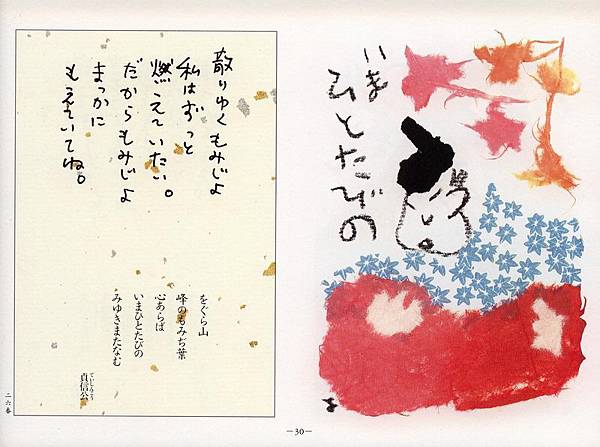 いま
ひとたびの
散りゆくもみじよ
私はずっと
燃えていたい。
だからもみじよ
まっかに
もえていてね。
をぐら山
峰のもみぢ葉
心あらば
いまひとたびの
みゆきまたなむ
ていしんこう
貞信公
二六番
—30—